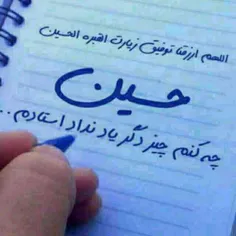 اللهم ارزقنا توفیق زیارت اقبره الحسین
حسین
چه کنم چیز دگر یاد نداد استادم ...